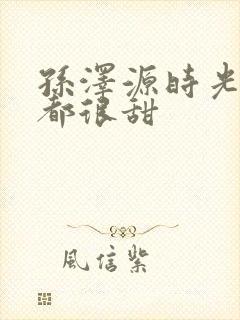 孫澤源時光
都很甜
風信紫